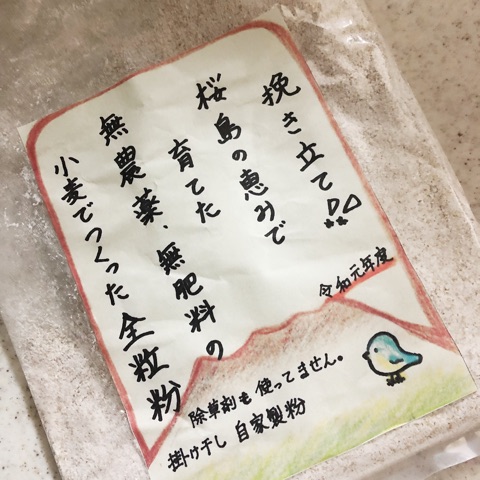 挽き立て!!
桜島の恵みで
育てた
無農薬、無肥料の
小麦でつくった全粒粉
令和元年度
除草剤も使ってません。
掛け干し 自家製粉